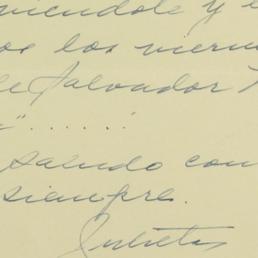 niendole y e
os los viern
de Salvador
" . . . . .
saludo con
siempre.
Julieta